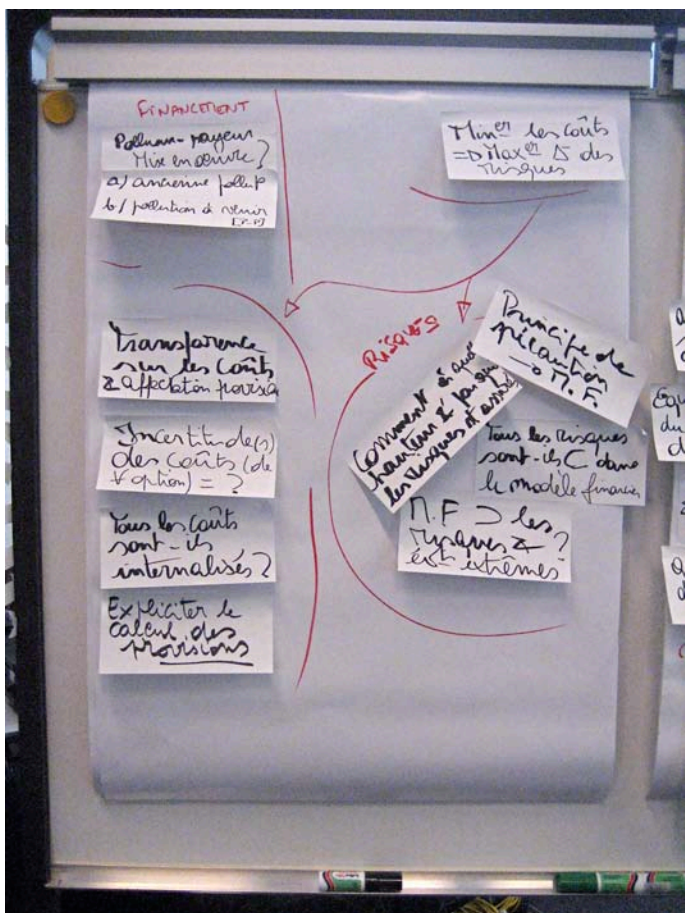 FINANCEMENT
Polluan-payeur
Mise en œuvre ?
a) ancienne pollut°
b) pollution à venir
[P-P]
Min^er les coûts
=> Max^er Δ des
risques
Transparence
sur les coûts
& affectation provis°
Incertitude(s)
des coûts (de
∀ option) = ?
Tous les coûts
sont-ils
internalisés ?
Expliciter le
calcul des
provisions
RISQUES
Principe de
précaution
→ M.F.
Comment & à quelle
hauteur &
les risques
Tous les risques
sont-ils C dans
le modèle financier
M.F ⊃ les
risques &
extrêmes ?